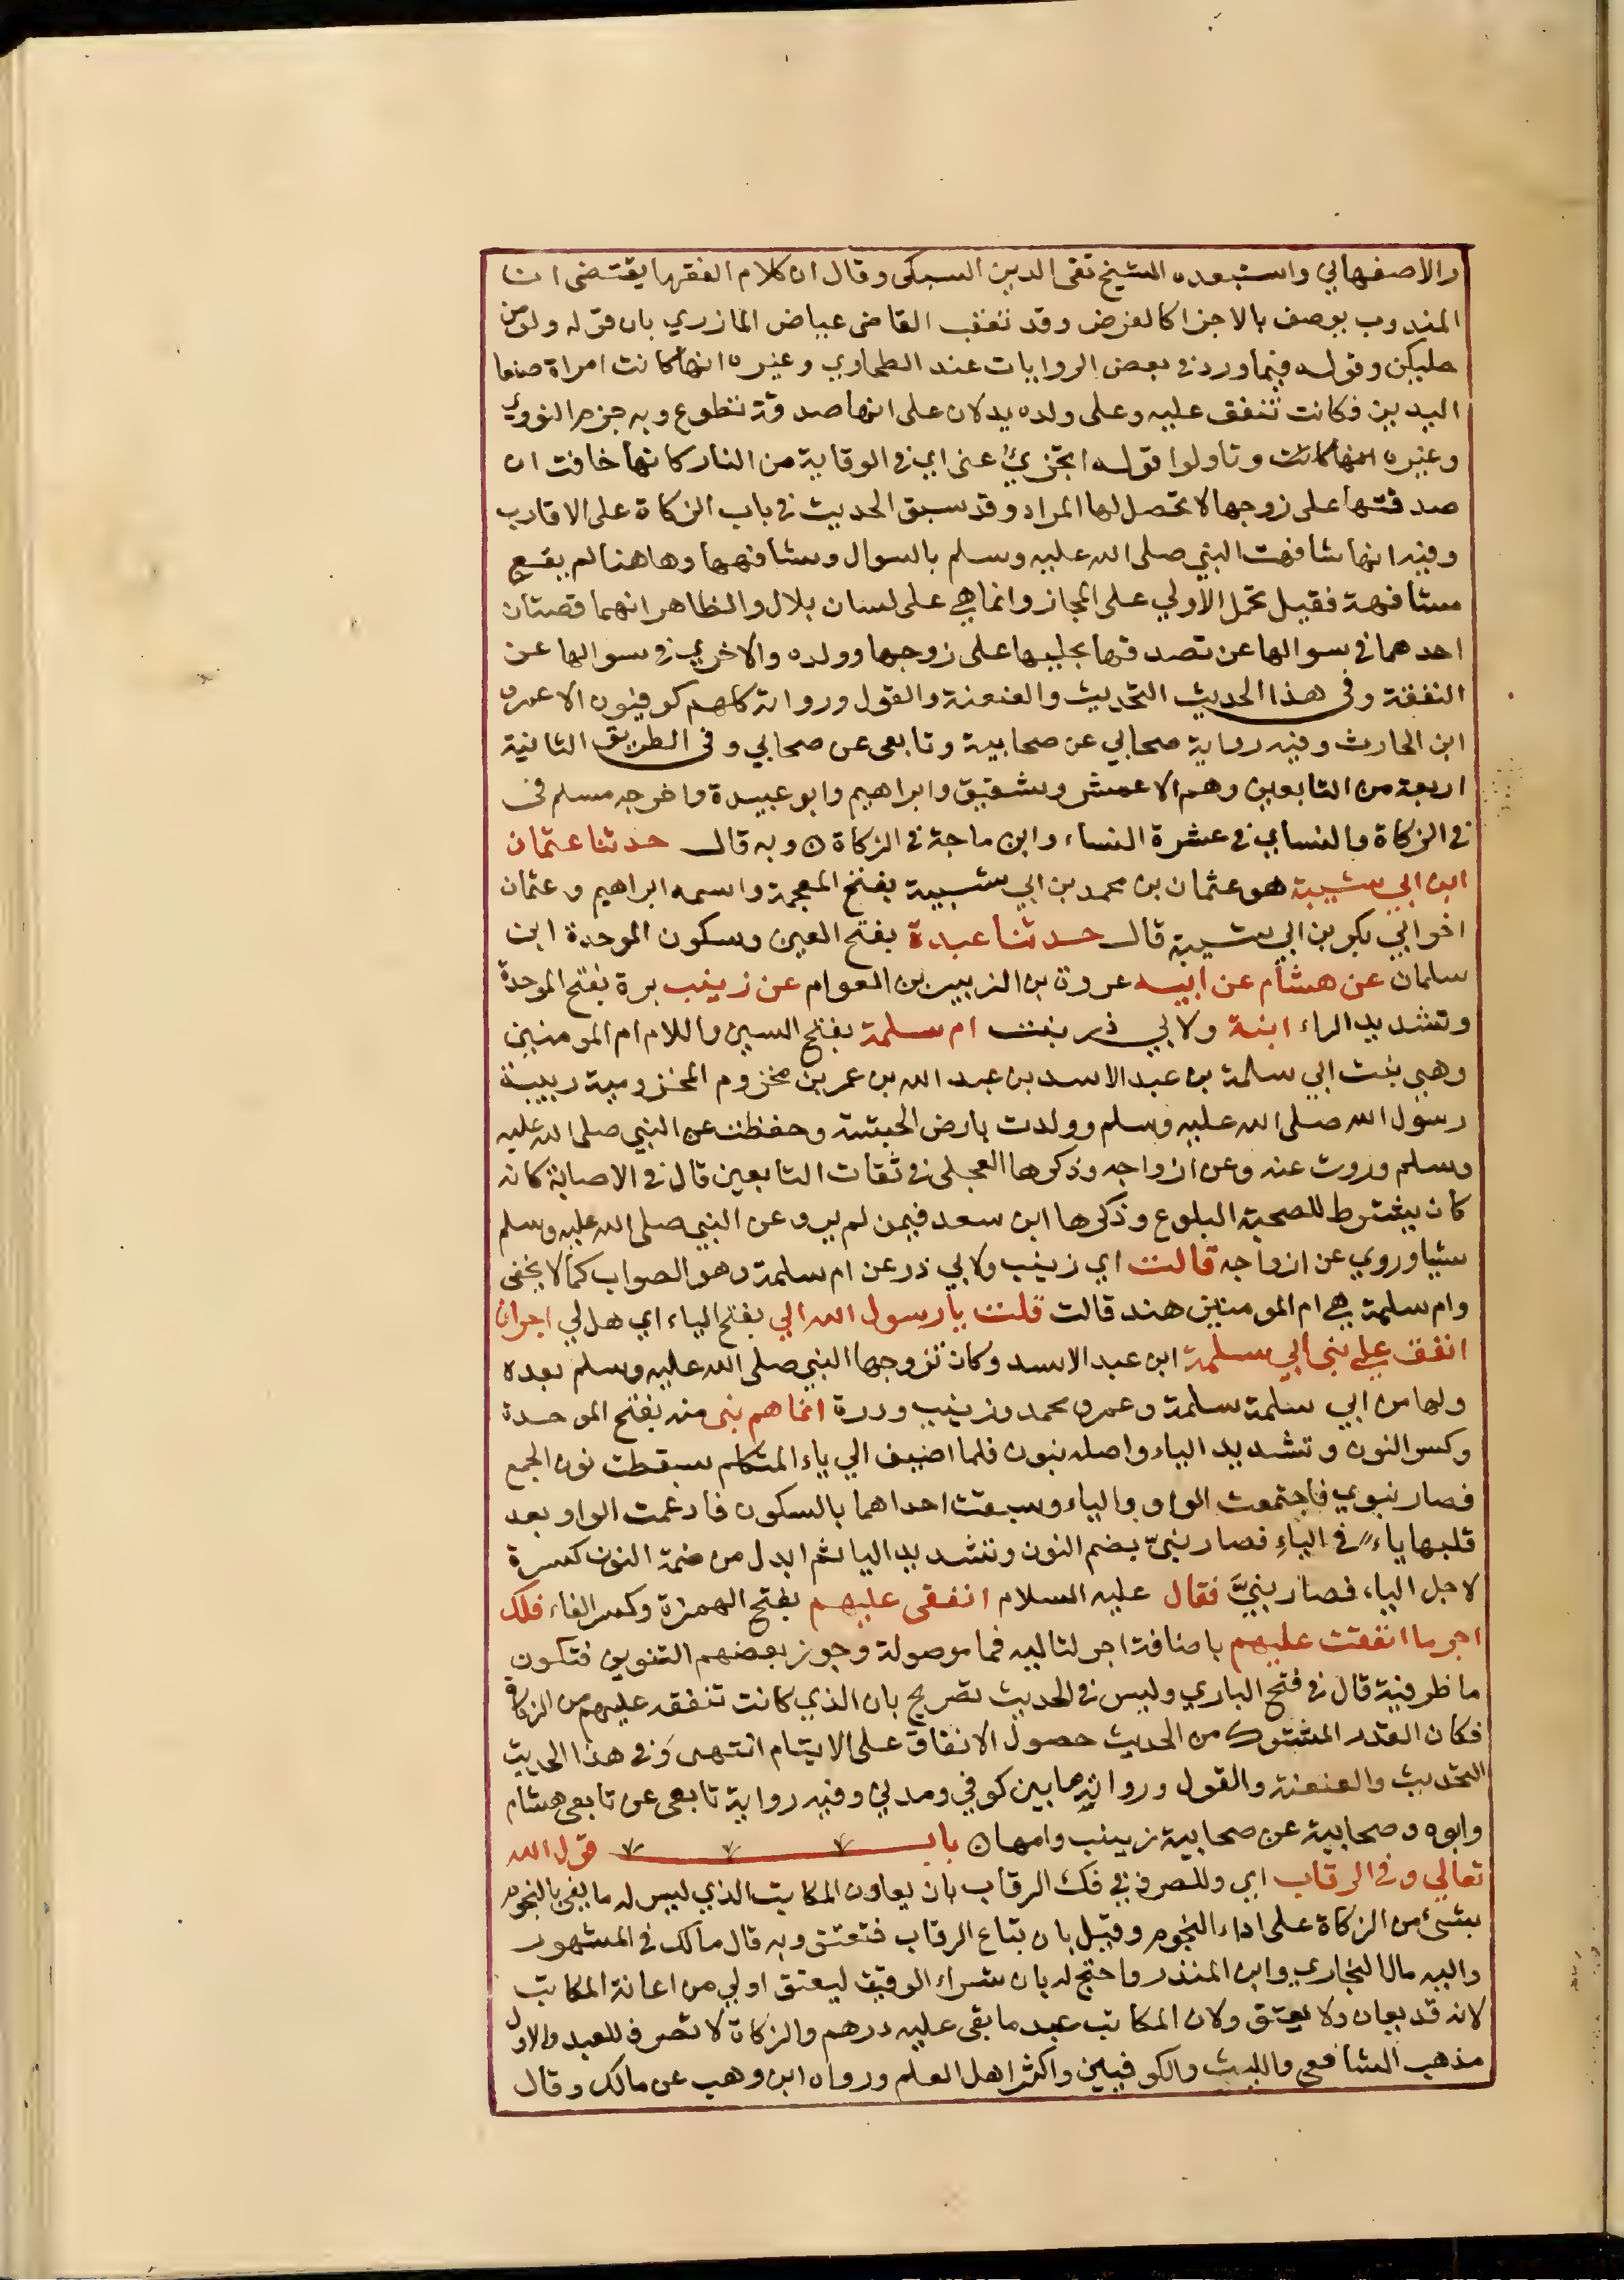 والاصفهاني واستبعده الشيخ تقي الدين السبكي وقال ان كلام الفقها يقتضي ان
المندوب يوصف بالاجزا كالفرض وقد تعقب القاضي عياض المازري بان قوله ولو من
حليكن وقوله فيما ورد في بعض الروايات عند الطحاوي وغيره انها كانت امراة صنعا
اليدين فكانت تنفق عليه وعلى ولده يدلان على انها صدقة تطوع وبه جزم النووي
وغيره وتاولوا قوله اتجزئ عني اي في الوقاية من النار كانها خافت ان
صدقتها على زوجها لا تحصل لها المراد وقد سبق الحديث في باب الزكاة على الاقارب
وفيه انها شافهت النبي صلى الله عليه وسلم بالسوال وشافهها وهاهنا لم يقع
مشافهة فقيل تحمل الاولي على المجاز وانما هي على لسان بلال والظاهر انهما قصتان
احدهما في سوالها عن تصدقها بحليها على زوجها وولده والاخري في سوالها عن
النفقة وفي هذا الحديث التحديث والعنعنة والقول ورواته كلهم كوفيون الا عمرو
ابن الحارث وفيه رواية صحابي عن صحابية وتابعي عن صحابي وفي الطريق الثانية
اربعة من التابعين وهم الاعمش وشقيق وابراهيم وابو عبيدة واخرجه مسلم في
في الزكاة والنساي في عشرة النساء وابن ماجة في الزكاة ه وبه قال حدثنا عثمان
ابن ابي شيبة هو عثمان بن محمد بن ابي شيبة بفتح المعجمة واسمه ابراهيم وعثمان
اخو ابي بكر بن ابي شيبة قال حدثنا عبدة بفتح العين وسكون الموحدة ابن
سلمان عن هشام عن ابيه عروة بن الزبير بن العوام عن زينب برة بفتح الموحدة
وتشديد الراء ابنة ولابي ذر بنت ام سلمة بفتح السين واللام ام المومنين
وهي بنت ابي سلمة بن عبد الاسد بن عبد الله بن عمر بن مخزوم المخزومية ربيبة
رسول الله صلى الله عليه وسلم وولدت بارض الحبشة وحفظت عن النبي صلى الله عليه
وسلم وروت عنه وعن ازواجه وذكرها العجلي في ثقات التابعين قال في الاصابة كانه
كان يشترط للصحبة البلوغ وذكرها ابن سعد فيمن لم يرو عن النبي صلى الله عليه وسلم
شيا وروي عن ازواجه قالت اي زينب ولابي ذر عن ام سلمة وهو الصواب كما لا يخفى
وام سلمة هي ام المومنين هند قالت قلت يا رسول الله الي بفتح الياء اي هل لي اجر ان
انفق علي بني ابي سلمة ابن عبد الاسد وكان تزوجها النبي صلى الله عليه وسلم بعده
ولها من ابي سلمة سلمة وعمر ومحمد وزينب ودرة انما هم بني منه بفتح الموحدة
وكسر النون وتشديد الياء واصله بنون فلما اضيف الي ياء المتكلم سقطت نون الجمع
فصار بنوي فاجتمعت الواو والياء وسبقت احداهما بالسكون فادغمت الواو بعد
قلبها ياء في الياءِ فصار بنيّ بضم النون وتشديد اليا ثم ابدل من ضمة النون كسرة
لاجل الياء فصار بنيَّ فقال عليه السلام انفقي عليهم بفتح الهمزة وكسر الفاء فلك
اجر ما انفقت عليهم باضافة اجر لتاليه فما موصولة وجوز بعضهم التنوين فتكون
ما ظرفية قال في فتح الباري وليس في الحديث تصريح بان الذي كانت تنفقه عليهم من الزكاة
فكان القدر المشترك من الحديث حصول الانفاق على الايتام انتهى وفي هذا الحديث
التحديث والعنعنة والقول ورواته ما بين كوفي ومدني وفيه رواية تابعي عن تابعي هشام
وابوه وصحابية عن صحابية زينب وامها ه باب قول الله
تعالي وفي الرقاب اي وللصرف في فك الرقاب بان يعاون المكاتب الذي ليس له ما يفي بالنجوم
بشئ من الزكاة على اداء النجوم وقيل بان تبتاع الرقاب فتعتق وبه قال مالك في المشهور
واليه مال البخاري وابن المنذر واحتج له بان شراء الرقيق ليعتق اولي من اعانة المكاتب
لانه قد يعان ولا يعتق ولان المكاتب عبد ما بقي عليه درهم والزكاة لا تصرف للعبد والاول
مذهب الشافعي والليث والكوفيين واكثر اهل العلم ورواه ابن وهب عن مالك وقال